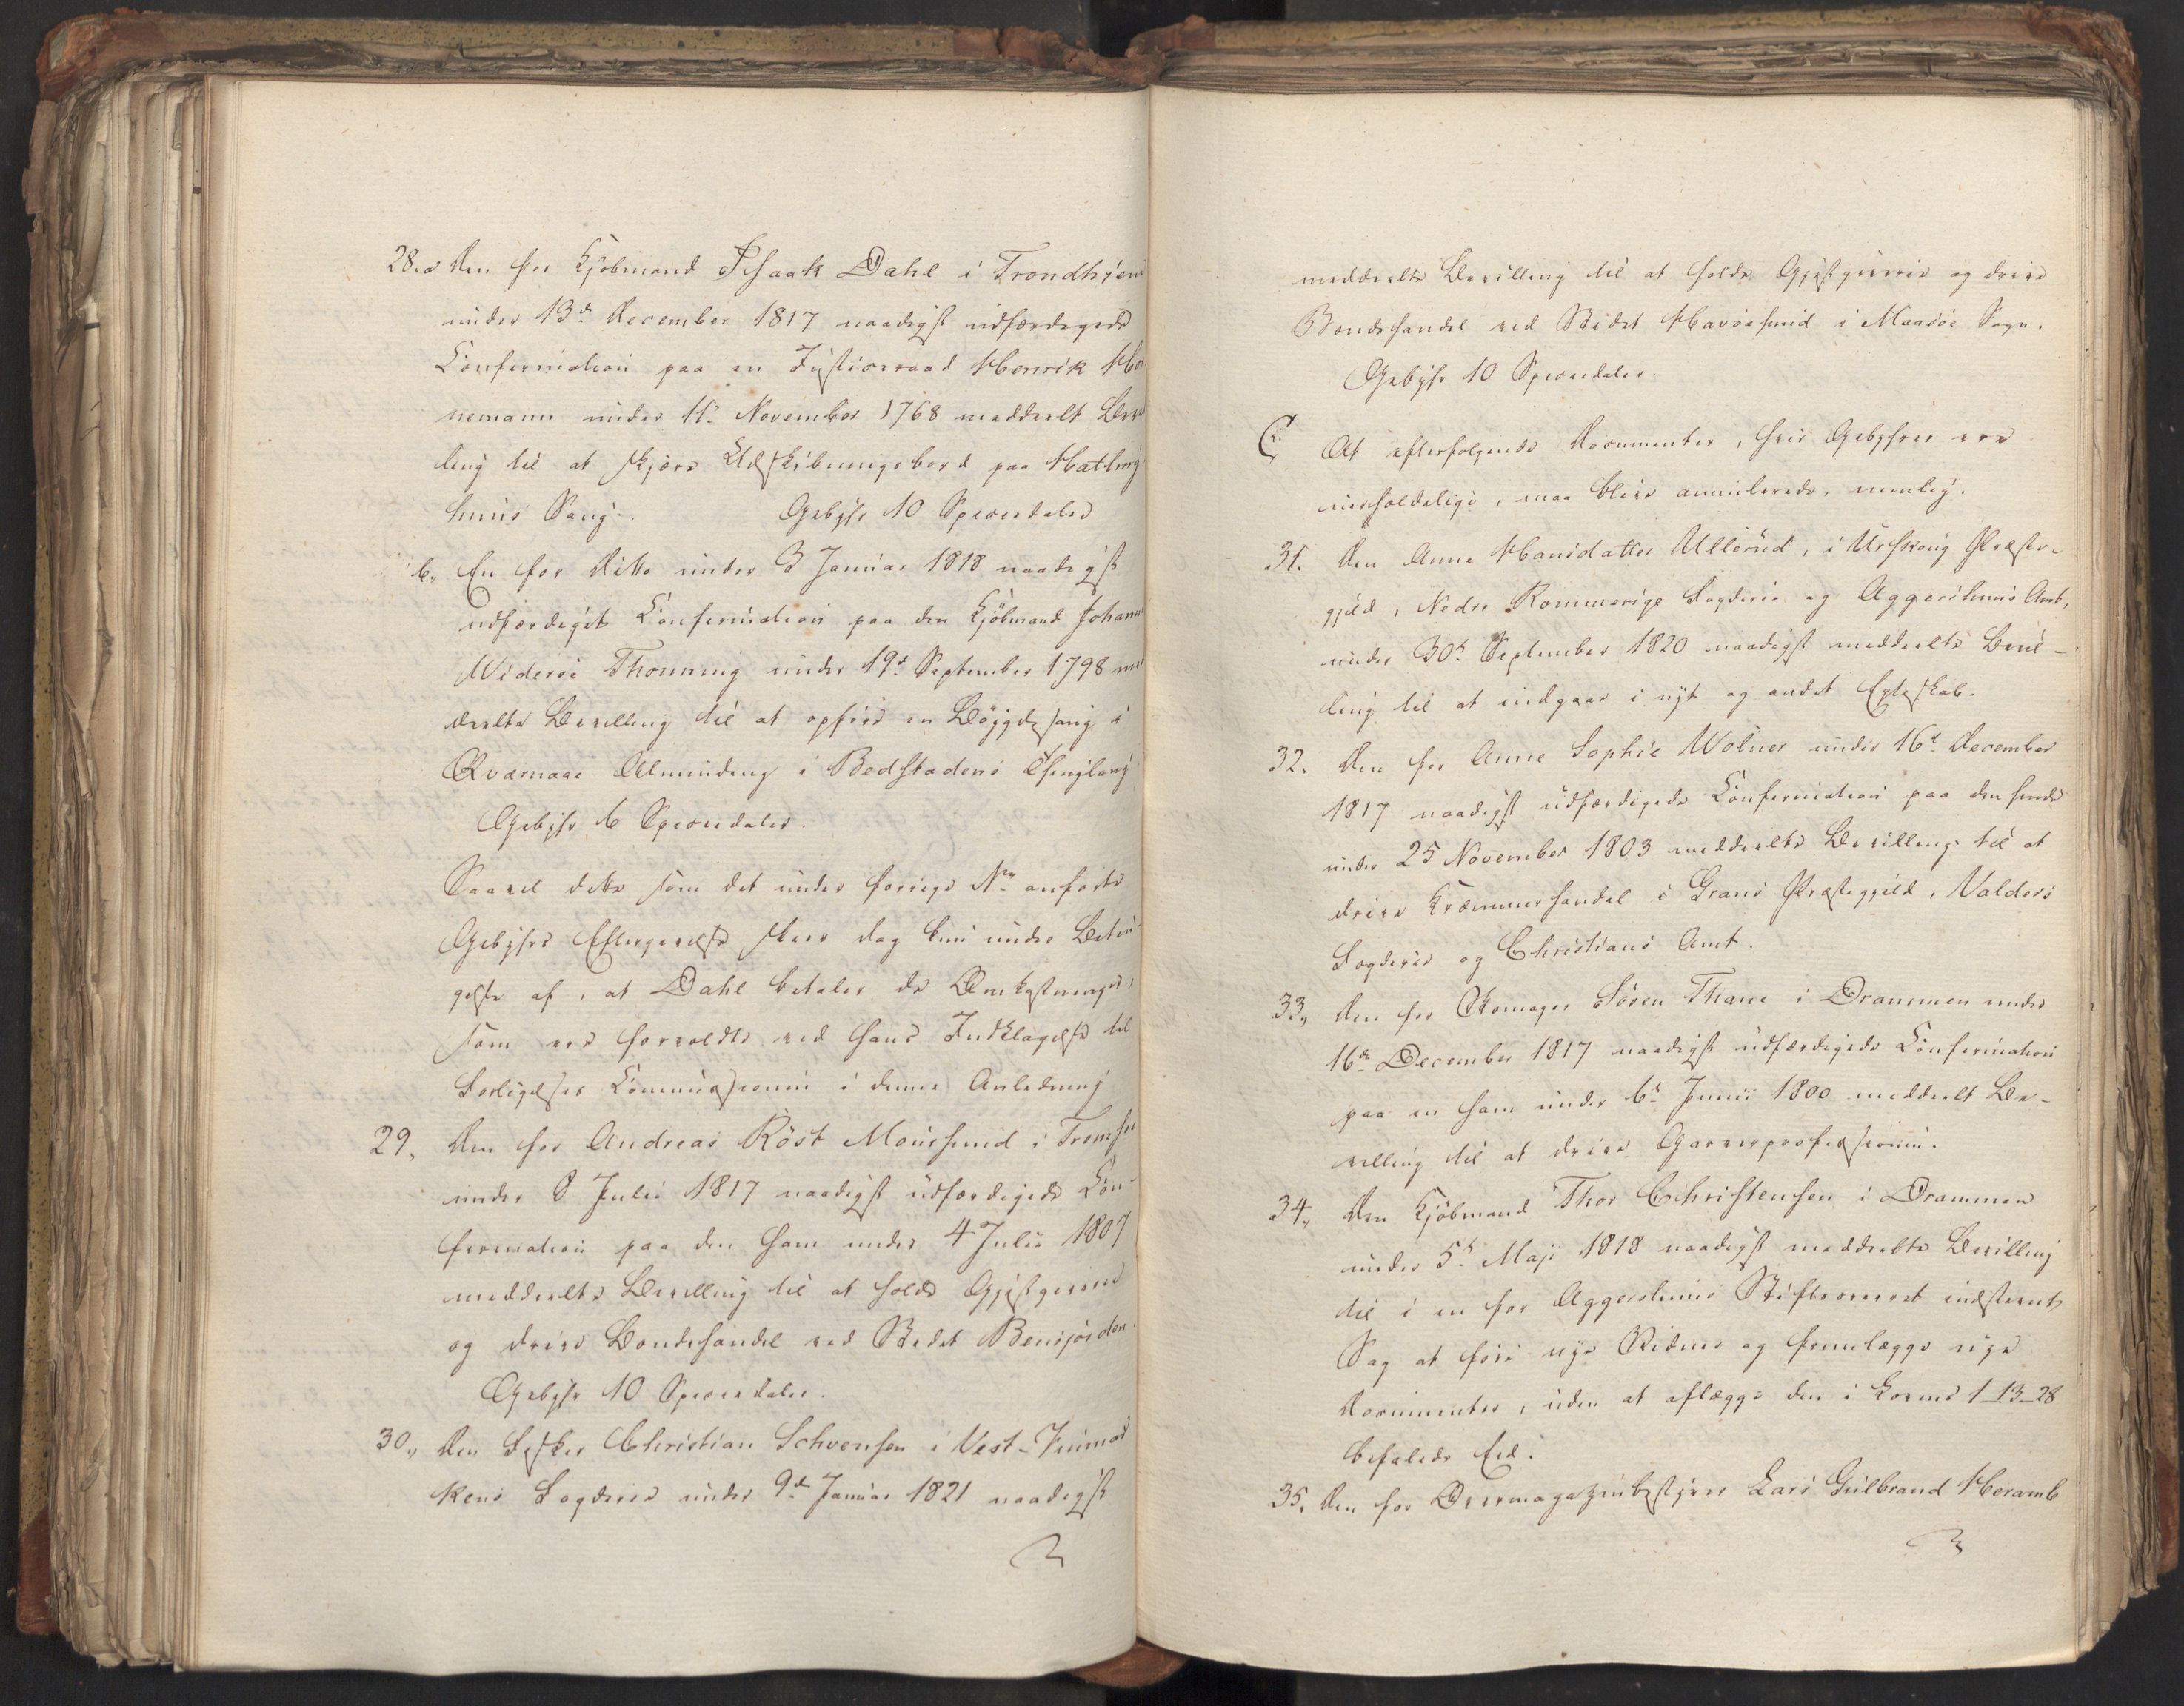 28.a Den for Kjöbmand Isaak Dahl i Trondhjem
under 13de December 1817 naadigst udfærdigede
Confirmation paa en Justiceraad Henrik Hor
nemann under 11te November 1768 meddeelt Bevil
ling til at skjære Udskibningsbord paa Hatling
huus Saug. Gebÿhr 10 Speciedaler
b., En for Ditto under 3 Januar 1818 naadigst
udfærdiget Confirmation paa den Kjöbmand Johan
Widerøe Thonning under 19de September 1798 med
deelte Bevilling til at opføre en Böigdesaug i
Qværnaae Alminding i Bedstadens
Gebÿhr 6 Speciedaler.
Saavel dette som det under forrige No anførte
Gebÿhrs Eftergivelse skeer dog kun under Betin
gelse af, at Dahl betaler de Omkostninger,
som ere forvoldte ved hans Indklagelse til
Forligelses Commissionen i denne Anledning
29, Den for Andreas Röst Moursund i Tromsøe
under 8 Julii 1817 naadigst udfærdigede Con-
firmation paa den ham under 4 Julii 1807
meddeelte Bevilling til at holde Gjestgiverie
og drive Bondehandel ved Stedet Bensjorden.
Gebÿhr 10 Speciedaler.
30., Den Fisker Christian Schvensen i Vest-Finmar
kens Fogderie under 9de Januar 1821 naadigst
meddeelte Bevilling til at holde Gjestgiverie og drive
Bondehandel ved Stedet Havöesund i Maasöe Sogn.
Gebÿhr 10 Speciedaler.
C., At efterfølgende Documenter, hvis Gebÿhrer ere
uerholdelige, maa blive annullerede, nemlig.
31. Den Anne Hansdatter Ullerud, i Urskoug Præste-
gjeld, Nedre Rommerige Fogderie og Aggershuus Amt,
under 30te September 1820 naadigst meddeelte Bevil-
ling til at indgaae i nyt og andet Egteskab.
32. Den for Anne Sophie Wölner under 16de December
1817 naadigst udfærdigede Confirmation paa den hende
under 25 November 1803 meddeelte Bevilling til at
drive Kræmmerhandel i Grans Præstegjeld, Valders
Fogderie og Christians Amt.
33., Den for Skomager Sören Thane i Drammen under
16de December 1817 naadigst udfærdigede Confirmation
paa en ham under 6te Junii 1800 meddeelt Be-
villing til at drive Garverprofessionen.
34., Den Kjöbmand Thor Christensen i Drammen
under 5te Maji 1818 naadigst meddeelte Bevilling
til i en for Aggershuus Stiftsoverret indstevnt
Sag at føre nye Vidner og fremlægge nye
Documenter, uden at aflægge den i Lovens 1_13_28
befalede Eed.
35. Den for Overmagazinbestyrer Lars Gulbrand Heramb